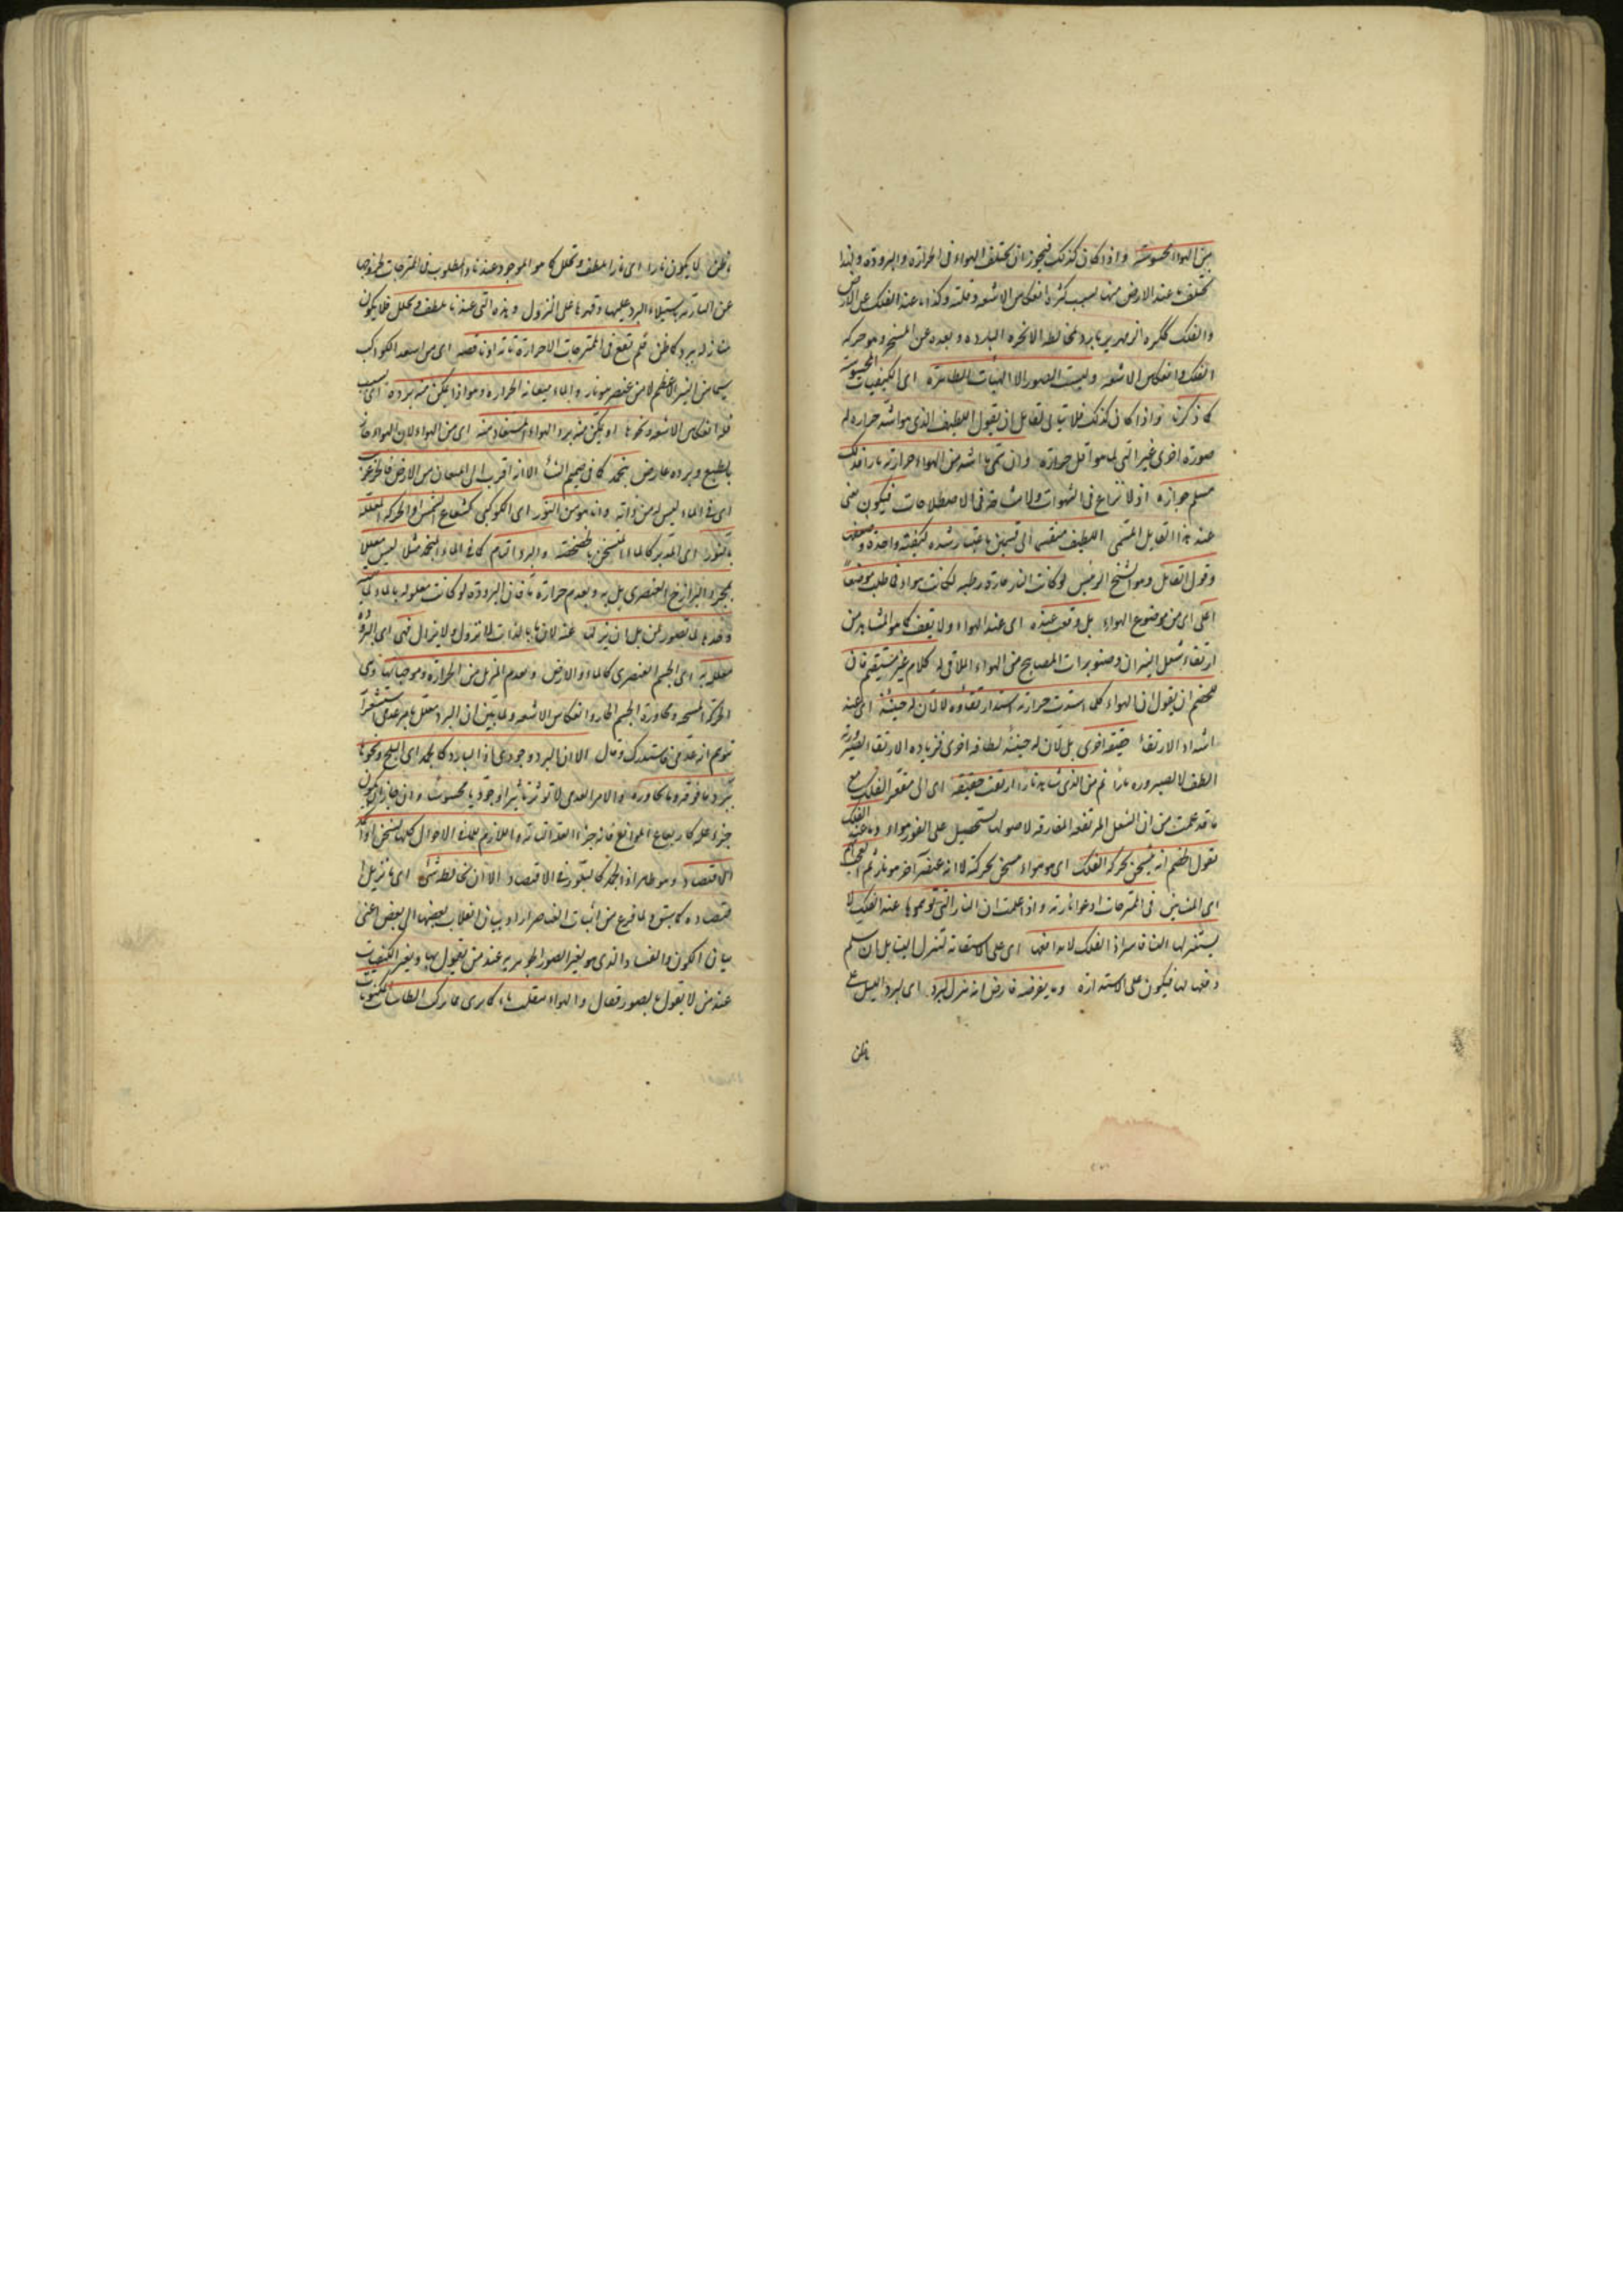 من الهواء محسوسة واذا كان كذلك فيجوز ان يختلف الهواء فى الحرارة والبرودة ولهذا
تختلف ما عند الارض منها بسبب كثرة انعكاس الاشعة وقلته وكذا ما عند الفلك عن الارض
والفلك ككرة الزمهرير ما برد لمخالطة الابخرة الباردة وبعده عن المسخن وهو حركة
الفلك وانعكاس الاشعة وليست الصور الا الهيئات الظاهرة اى الكيفيات المحسوسة
كما ذكرنا واذا كان كذلك فلا يتأتى لقائل ان يقول اللطيف الذى هو اشد حرارة له
صورة اخرى غير التى لما هو اقل حرارة وان سمى ما اشد من الهواء حرارته نارا فذلك
مسلم جوازه اذ لا نزاع فى الشهوات ولا مشاحة فى الاصطلاحات فيكون معنى
عند هذا القايل المسمى اللطيف منقسم الى قسمين باعتبار شدة كيفية واحدة وضعفها
وقول القائل وهو الشيخ الرئيس لو كانت النار حارة رطبة لكانت هواء فى طلب موضعا
اعلى اى من موضع الهواء بل وقعت عنده اى عند الهواء ولا يقف كما هو المشاهد من
ارتفاع شعل النيران وصنوبرات المصابيح من الهواء الملاقى له كلام غير مستقيم فان
للخصم ان يقول ان الهواء كلما اشتدت حرارته اشتد ارتفاؤه لا لان له حينئذ اى عند
اشتداد الارتقاء حقيقة اخرى بل لان له حينئذ لطافة اخرى فزيادة الارتقاء لصيرورته
الطف لا لصيرورة نارا ثم من الذى شاهد نارا ارتقت حقيقة اى الى مقعر الفلك مع
ما قد علمت من ان الشعل المرتفعة المفارقة لاصولها تستحيل على الفور هواء وما عند الفلك
نقول الخصم انه يسخن بحركة الفلك اى هو هواء مسخن بحركته لا انه عنصر آخر هو نار ثم العجب
اى المشائين فى الممتزجات ادعوا نارية واذا علمت ان النار التى توهموها عند الفلك لا
يستنزلها القاسر اذ الفلك لا يدافعها اى على استقامة لتنزل الينا بل ان سلم
دفعها لها فيكون على الاستدارة وما يفرضه فارض انه نزل البرد اى البرد الميل على
ما ظن
ما ظن لا يكون نارا اى نارا بلطف وتحلل كما هو الموجود عندنا والمطلوب فى الممتزجات لخروجها
عن النارية باستيلاء البرد عليها وقهرها على النزول وهذه التى عندنا تلطف وتحلل فلا يكون
نازلة ببرد كما ظن فلم تقع فى الممتزجات الا حرارة تامة او ناقصة اى من اشعة الكواكب
سيما من النير الاعظم لا من عنصر هو نار والماء ميعانه الحرارة وهو اذا يكن منه برده اى بسبب
قلة انعكاس الاشعة ونحوها او تمكن منه برد الهواء المستفاد منه اى من الهواء لان الهواء حار
بالطبع وبرده عارض ينجمد كما فى صميم الشتاء الا انه اقرب الى الميعان من الارض فالحر عن
اى فى الماء ليس له من ذاته وانه هو من النور اى الكوكبى كشعاع الشمس او الحركة المعللة
بالنور اى المدبر كالماء المتسخن بالخضخضة والبرد التام كما فى الماء المنجمد مثلا ليس معللا
بمجرد البرازخ العنصرى بل به وبعدم حرارة ما فان البرودة لو كانت معلولة بالماء لما
وحده لما تصور عن بل ان يزيله عنه لان ما بالذات لا يزول ولا يزال فهى اى البرودة
معللة به اى الجسم العنصرى كالماء والارض وبعدم المزيل من الحرارة وموجباتها وهى
الحركة المسخنة ومجاورة الجسم الحار وانعكاس الاشعة ولما بين ان البرد معلل بامر عدمى استشعر
توهم انه عدمى فاستدرك وقال الا ان البرد وجودى اذ البارد كالجمد اى الثلج ونحوها
يبرد ما فوقه وما يجاوره والامر العدمى لا تؤثر تاثيرا وجوديا محسوسا وان جاز ان يكون
جزء علة كارتفاع الموانع فانه جزء العلة التامة واللازم للماء الاحوال كلها يسخن او اقله
الاقتصاد وهو ظاهر اذ الجمد كالبلور فى الاقتصاد الا ان يخالطه شئ اى ما تزيل
اقتصاده كما سبق ولما فرغ من اثبات العناصر اراد بيان انقلاب بعضها الى بعض اعنى
بيان الكون والفساد الذى هو بغير الصور الجوهرية عند من يقول بها وبغير الكيفيات
عند من لا يقول بالصور فقال والهواء ينقلب ماء كما يرى مما ركب الطاسات المكبوبة